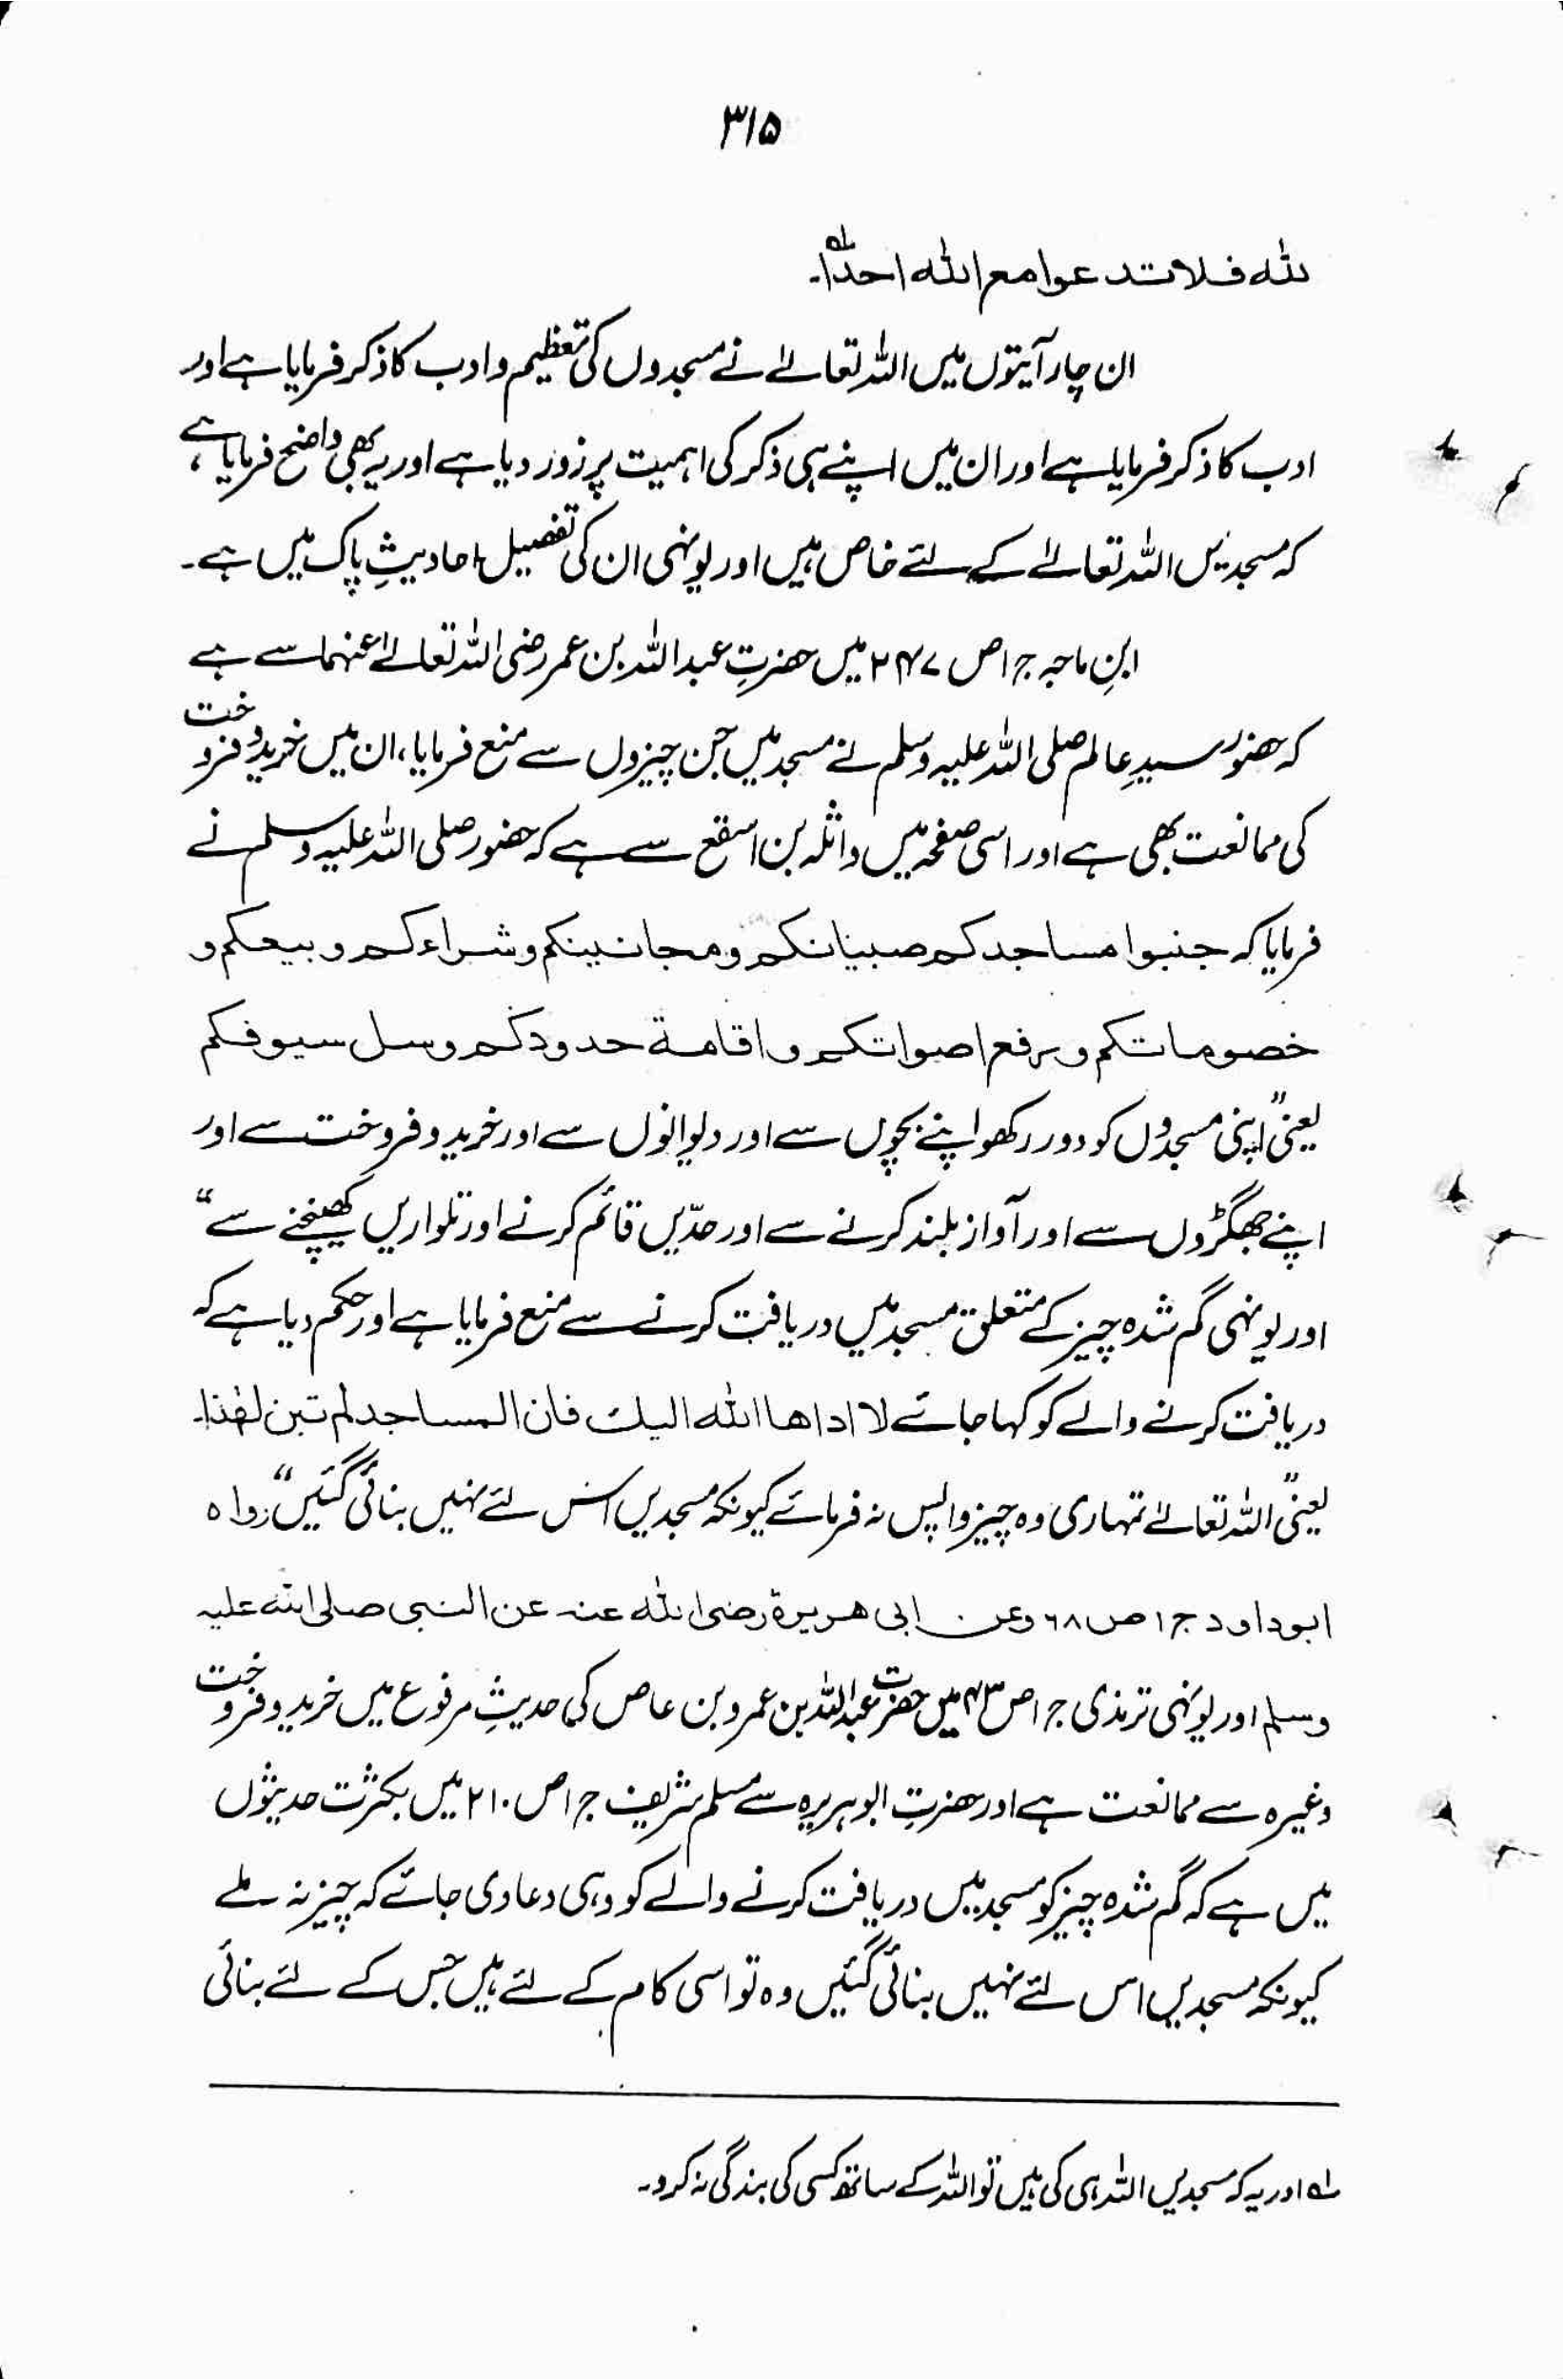 ۳۱۵
لله فلا تدعوا مع الله احدا۔ ؎۱
ان چار آیتوں میں اللہ تعالےٰ نے مسجدوں کی تعظیم و ادب کا ذکر فرمایا ہے اور
ادب کا ذکر فرمایا ہے اور ان میں اپنے ہی ذکر کی اہمیت پر زور دیا ہے اور یہ بھی واضح فرمایا ہے،
کہ مسجدیں اللہ تعالےٰ کے لئے خاص ہیں اور یونہی ان کی تفصیل احادیثِ پاک میں ہے۔
ابنِ ماجہ ج۱ ص ۲۴۷ میں حضرتِ عبداللہ بن عمر رضی اللہ تعالےٰ عنہما سے ہے
کہ حضور سیدِ عالم صلی اللہ علیہ وسلم نے مسجد میں جن چیزوں سے منع فرمایا، ان میں خرید و فروخت
کی ممانعت بھی ہے اور اسی صفحہ میں واثلہ بن اسقع سے ہے کہ حضور صلی اللہ علیہ وسلم نے
فرمایا کہ جنبوا مساجدکم صبیانکم و مجانینکم و شراءکم و بیعکم و
خصوماتکم و رفع اصواتکم و اقامة حدودکم و سل سیوفکم
یعنی "اپنی مسجدوں کو دور رکھو اپنے بچوں سے اور دیوانوں سے اور خرید و فروخت سے اور
اپنے جھگڑوں سے اور آواز بلند کرنے سے اور حدّیں قائم کرنے اور تلواریں کھینچنے سے"
اور یونہی گم شدہ چیز کے متعلق مسجد میں دریافت کرنے سے منع فرمایا ہے اور حکم دیا ہے کہ
دریافت کرنے والے کو کہا جائے لا اداھا اللہ الیک فان المساجد لم تبن لھٰذا۔
یعنی "اللہ تعالےٰ تمہاری وہ چیز واپس نہ فرمائے کیونکہ مسجدیں اس لئے نہیں بنائی گئیں" رواہ
ابوداود ج۱ ص ۶۸ وعن ابی ھریرة رضی اللہ عنہ عن النبی صلی اللہ علیہ
وسلم اور یونہی ترمذی ج۱ ص ۴۳ میں حضرت عبداللہ بن عمرو بن عاص کی حدیثِ مرفوع میں خرید و فروخت
وغیرہ سے ممانعت ہے اور حضرتِ ابوہریرہ سے مسلم شریف ج۱ ص ۲۱۰ میں بکثرت حدیثوں
میں ہے کہ گم شدہ چیز کو مسجد میں دریافت کرنے والے کو وہی دعا دی جائے کہ چیز نہ ملے
کیونکہ مسجدیں اس لئے نہیں بنائی گئیں وہ تو اسی کام کے لئے ہیں جس کے لئے بنائی
؎۱ اور یہ کہ مسجدیں اللہ ہی کی ہیں تو اللہ کے ساتھ کسی کی بندگی نہ کرو۔